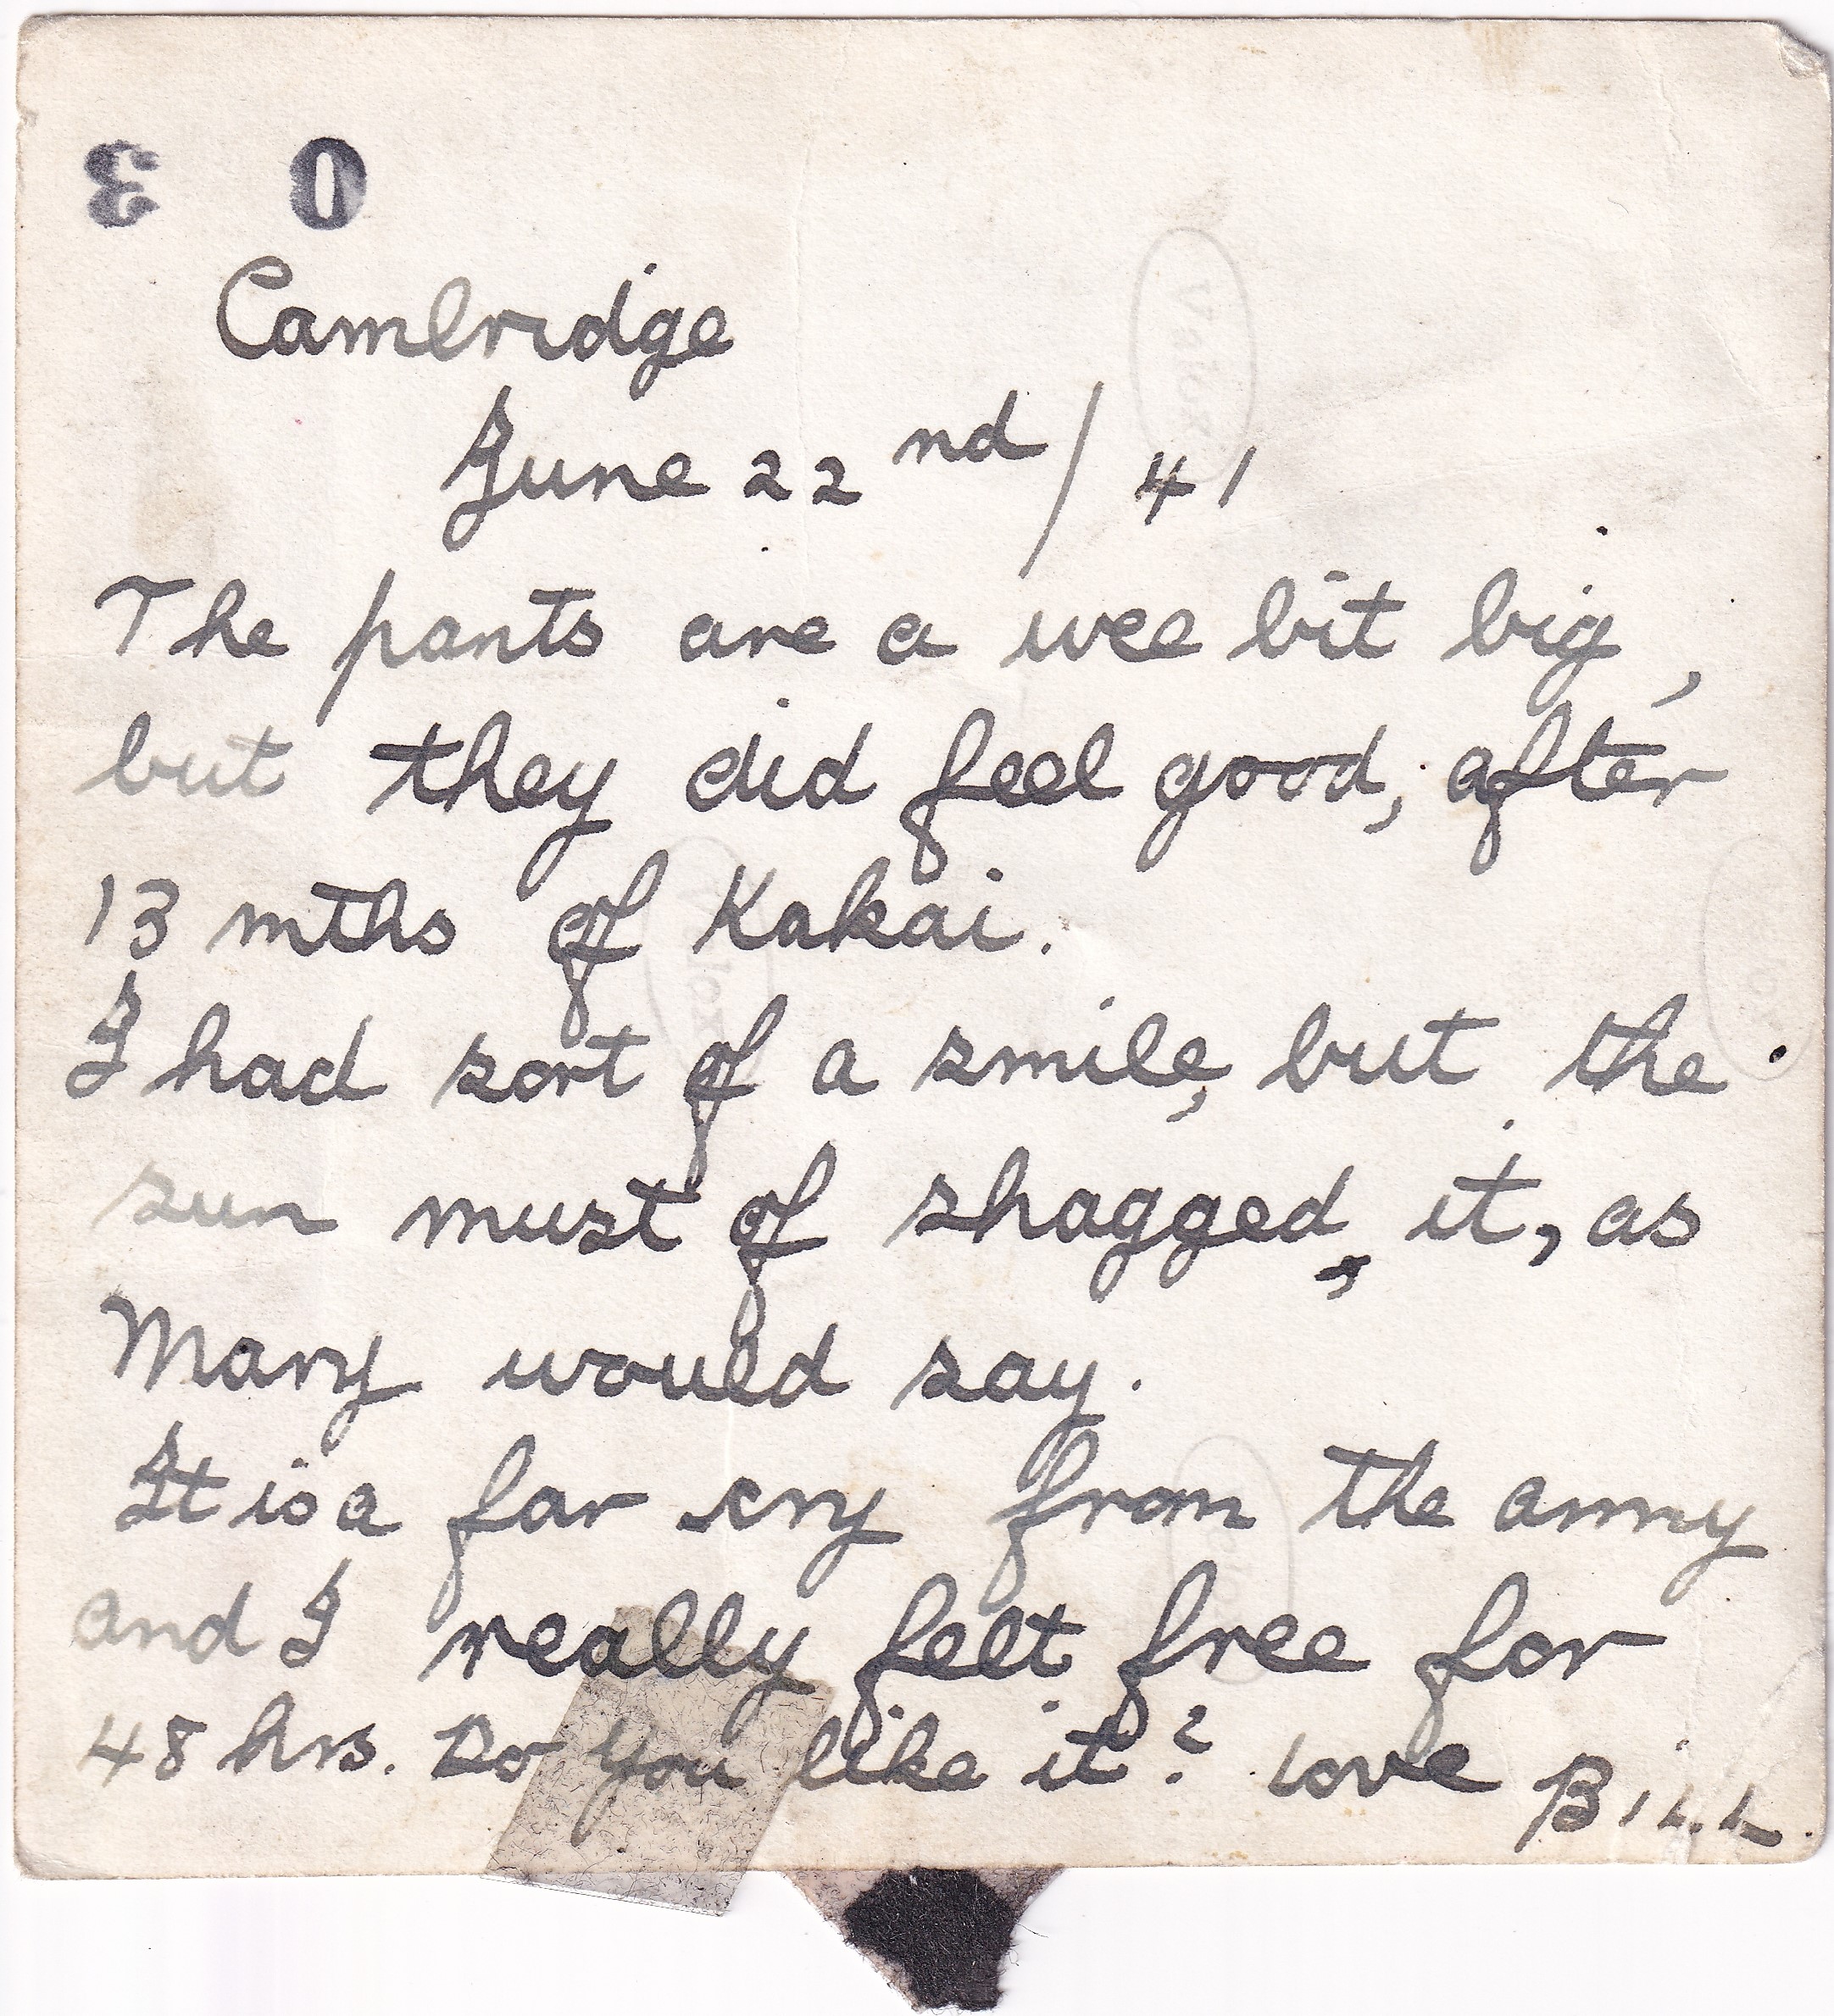 3 0
Cambridge
June 22nd / 41
The pants are a wee bit big,
but they did feel good, after
13 mths of Kakai.
I had sort of a smile, but the
sun must of shagged, it, as
Mary would say.
It is a far cry from the army
and I really felt free for
48 hrs. Do you like it? Love Bill.
Velox
Velox